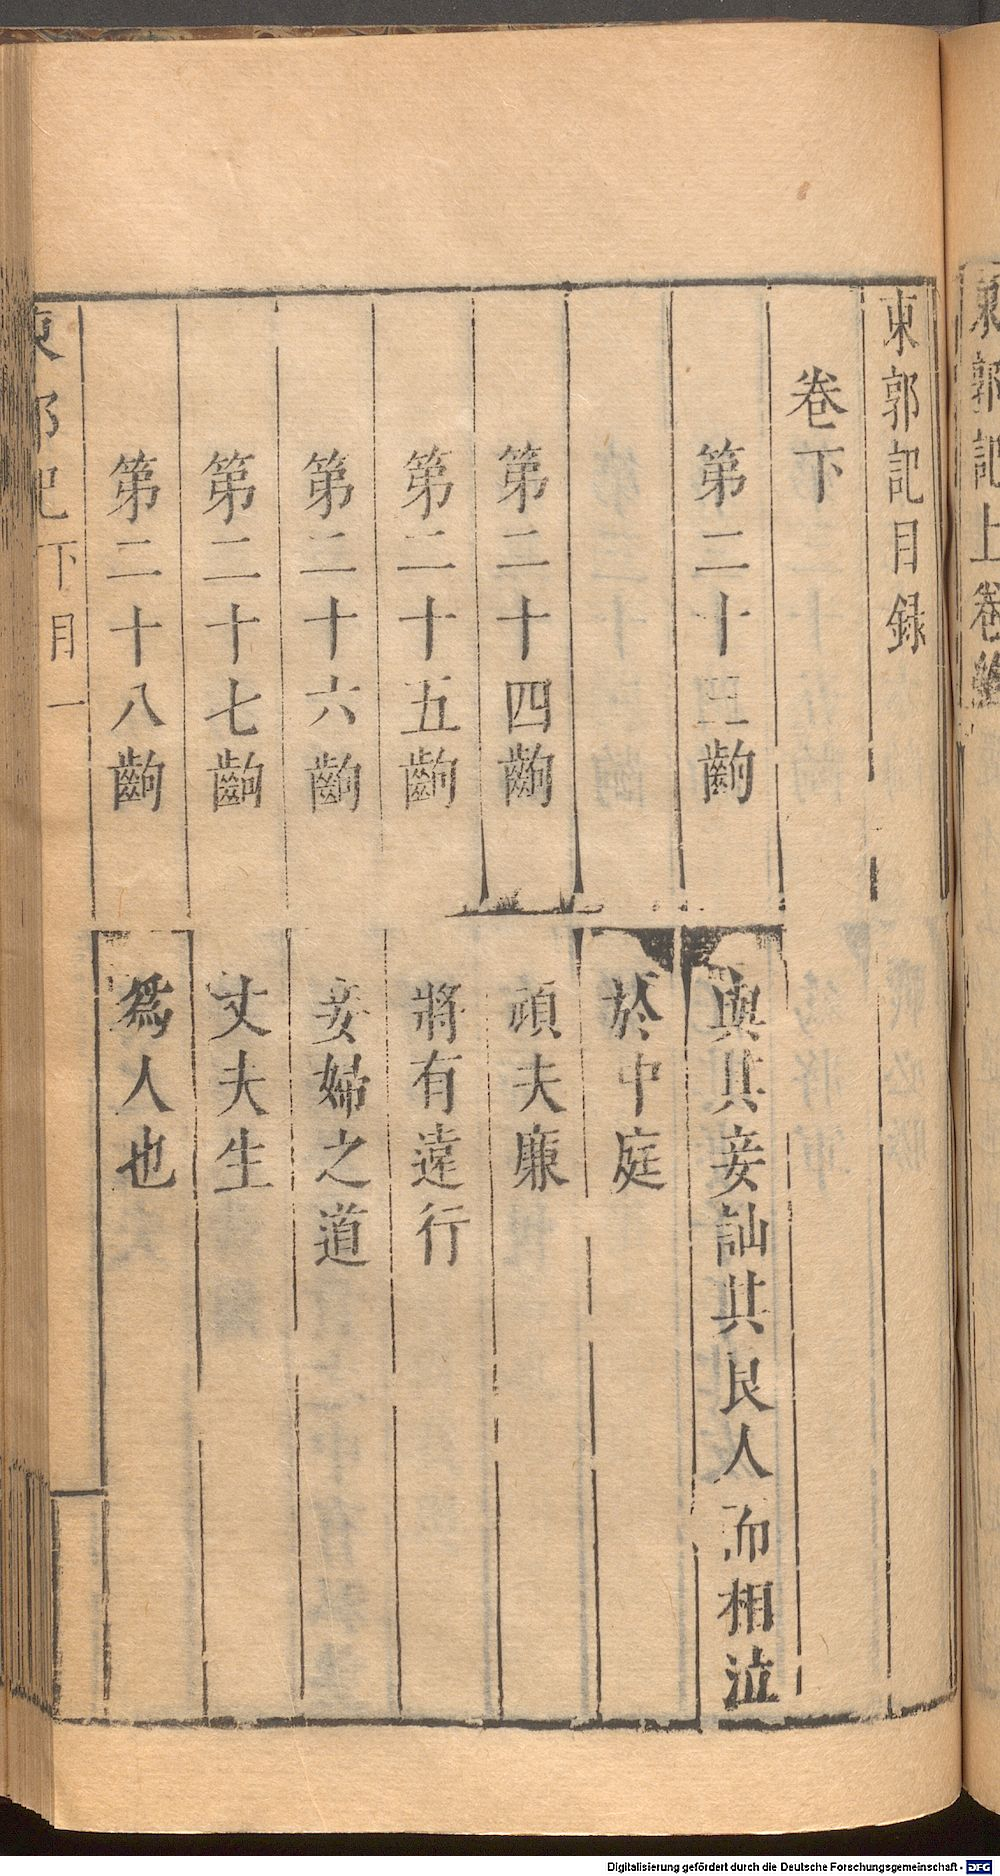 東郭記目録
卷下
第二十三齣 與其妾訕其良人而相泣
於中庭
第二十四齣 頑夫廉
第二十五齣 將有遠行
第二十六齣 妾婦之道
第二十七齣 丈夫生
第二十八齣 爲人也
東郭記 下目 一
東郭記上卷終
Digitalisierung gefördert durch die Deutsche Forschungsgemeinschaft - DFG